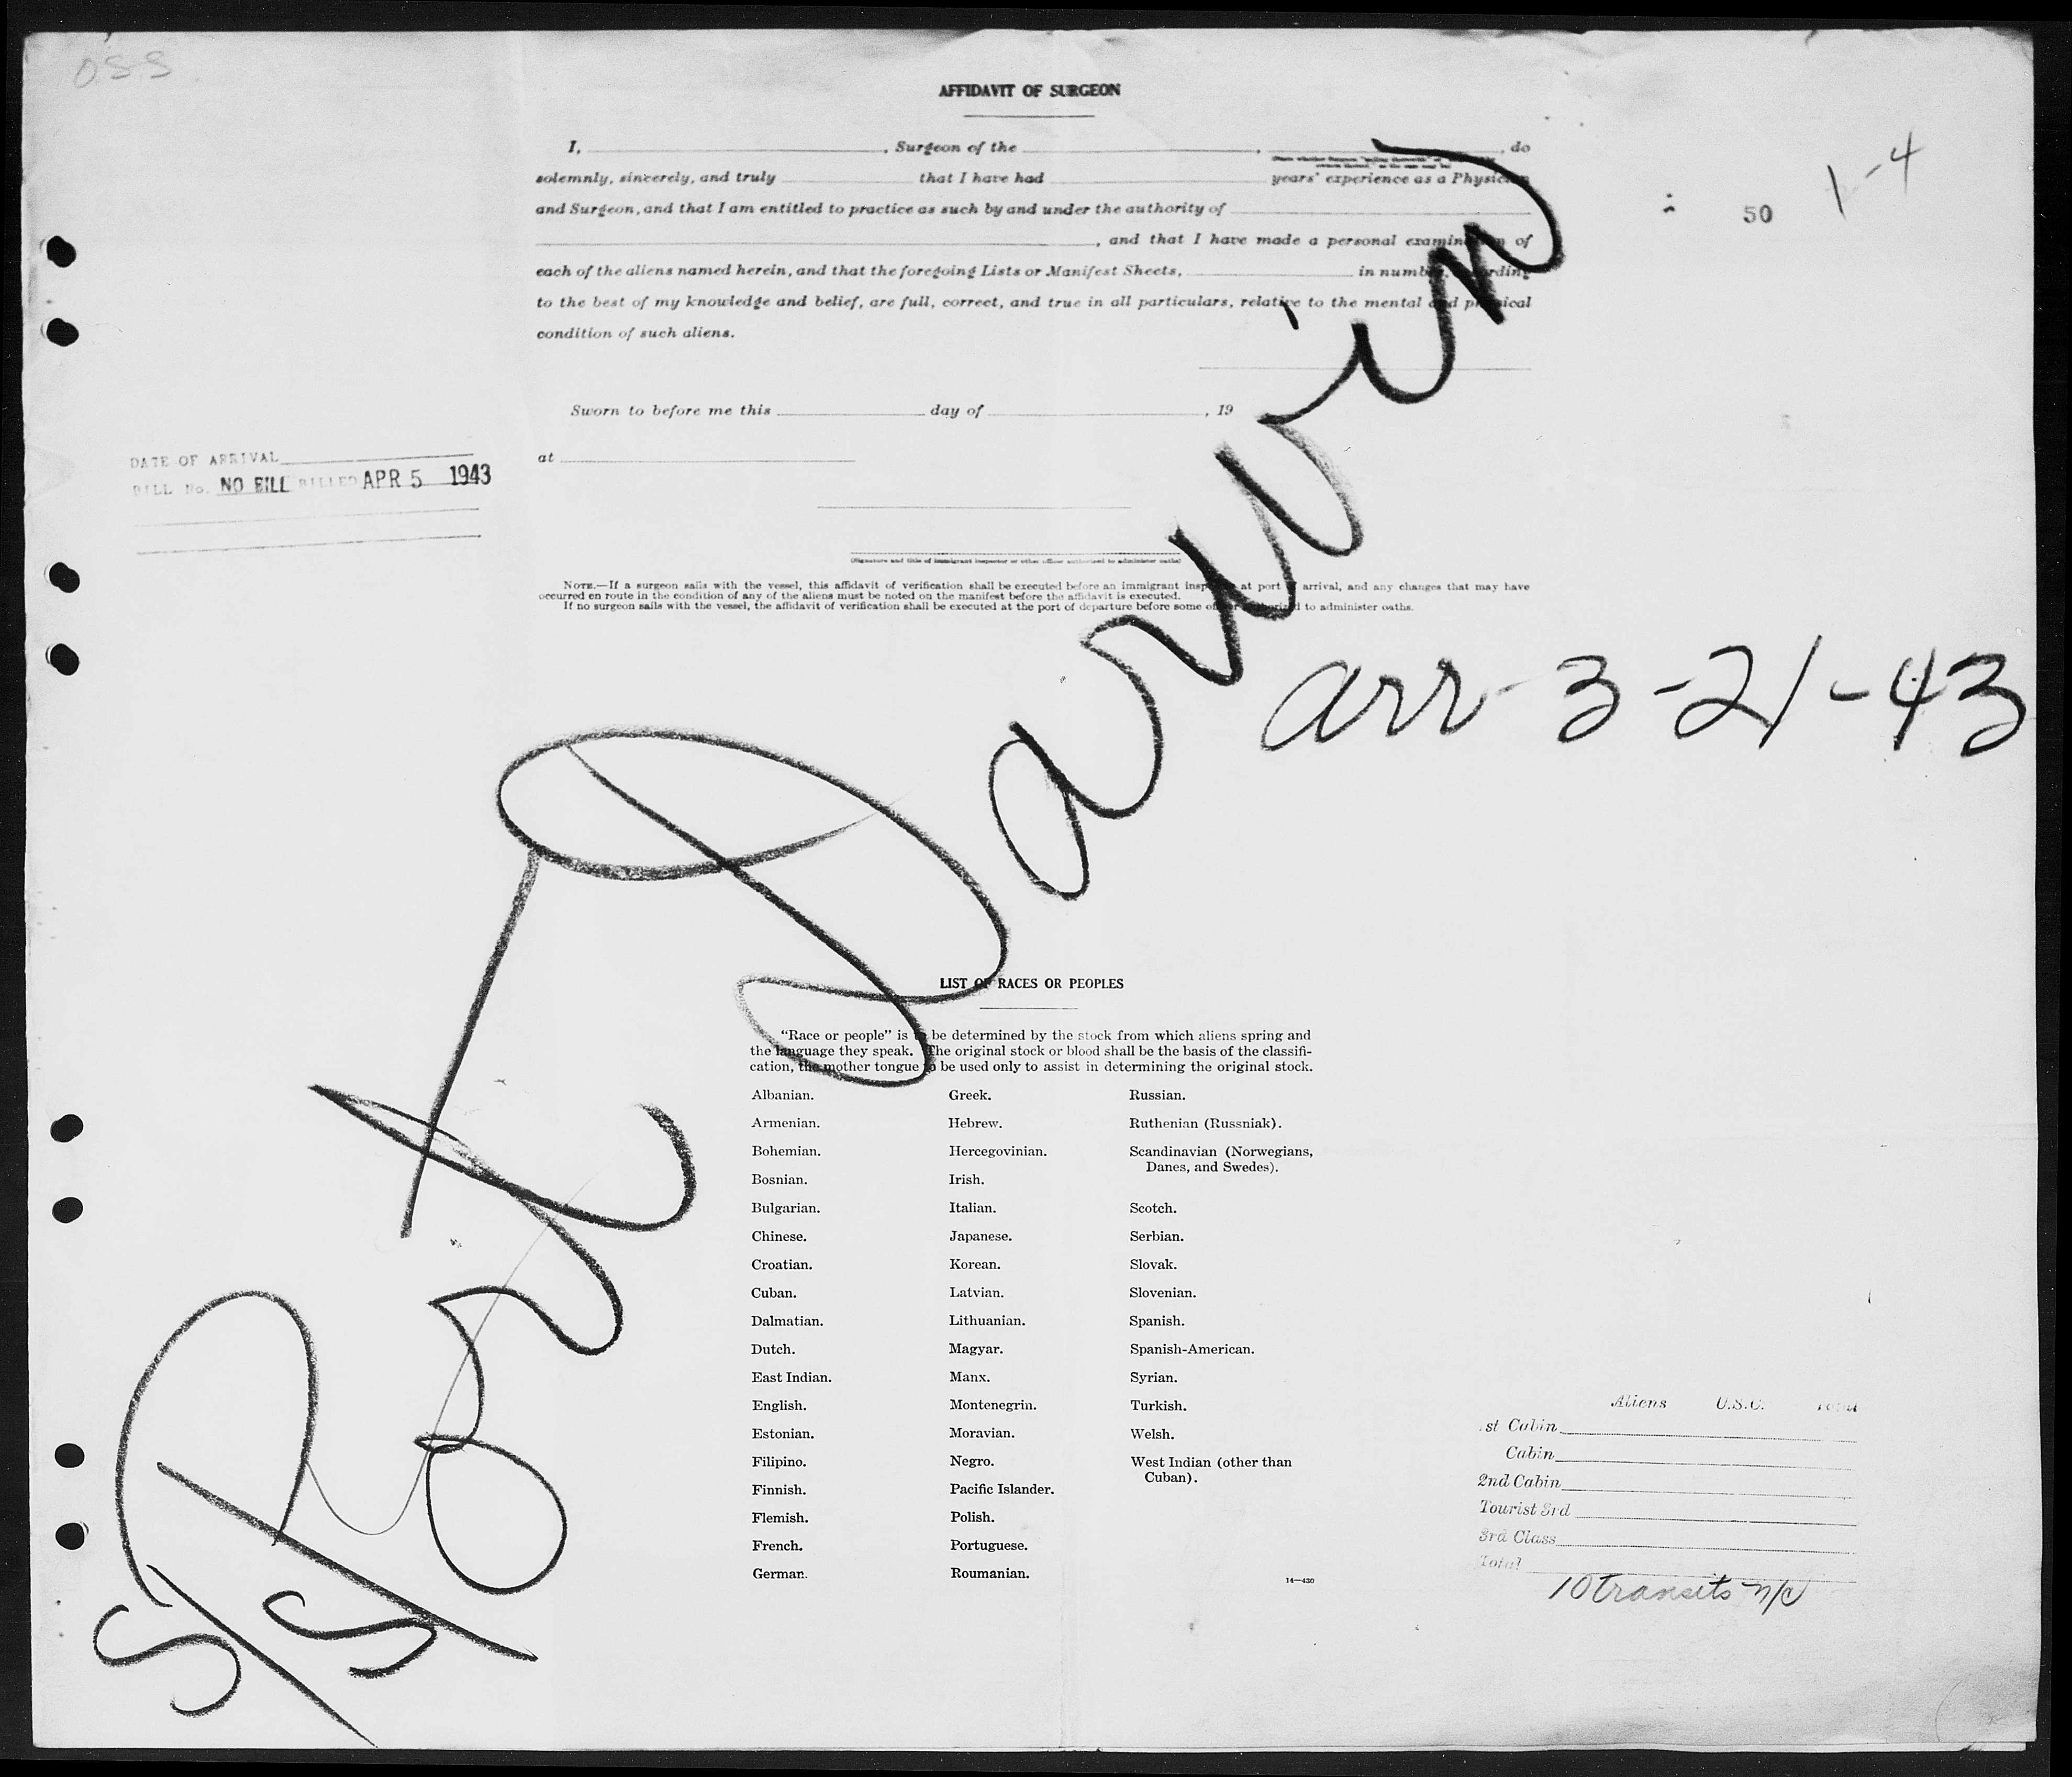 OSS
AFFIDAVIT OF SURGEON
I, , Surgeon of the , , do
solemnly, sincerely, and truly that I have had years' experience as a Physician
and Surgeon, and that I am entitled to practice as such by and under the authority of
, and that I have made a personal examination of
each of the aliens named herein, and that the foregoing Lists or Manifest Sheets, in number, according
to the best of my knowledge and belief, are full, correct, and true in all particulars, relative to the mental and physical
condition of such aliens.
50
1-4
Sworn to before me this day of , 19
at
DATE OF ARRIVAL
BILL No. NO BILL BILLED APR 5 1943
(Signature and title of immigrant inspector or other officer authorized to administer oaths)
NOTE.—If a surgeon sails with the vessel, this affidavit of verification shall be executed before an immigrant inspector at port of arrival, and any changes that may have
occurred en route in the condition of any of the aliens must be noted on the manifest before the affidavit is executed.
If no surgeon sails with the vessel, the affidavit of verification shall be executed at the port of departure before some officer authorized to administer oaths.
S/S Port Darwin
arr 3-21-43
LIST OF RACES OR PEOPLES
"Race or people" is to be determined by the stock from which aliens spring and
the language they speak. The original stock or blood shall be the basis of the classifi-
cation, the mother tongue to be used only to assist in determining the original stock.
Albanian.
Armenian.
Bohemian.
Bosnian.
Bulgarian.
Chinese.
Croatian.
Cuban.
Dalmatian.
Dutch.
East Indian.
English.
Estonian.
Filipino.
Finnish.
Flemish.
French.
German.
Greek.
Hebrew.
Hercegovinian.
Irish.
Italian.
Japanese.
Korean.
Latvian.
Lithuanian.
Magyar.
Manx.
Montenegrin.
Moravian.
Negro.
Pacific Islander.
Polish.
Portuguese.
Roumanian.
Russian.
Ruthenian (Russniak).
Scandinavian (Norwegians,
Danes, and Swedes).
Scotch.
Serbian.
Slovak.
Slovenian.
Spanish.
Spanish-American.
Syrian.
Turkish.
Welsh.
West Indian (other than
Cuban).
14—430
Aliens U.S.C. Total
1st Cabin
Cabin
2nd Cabin
Tourist 3rd
3rd Class
Total
10 transits n/c